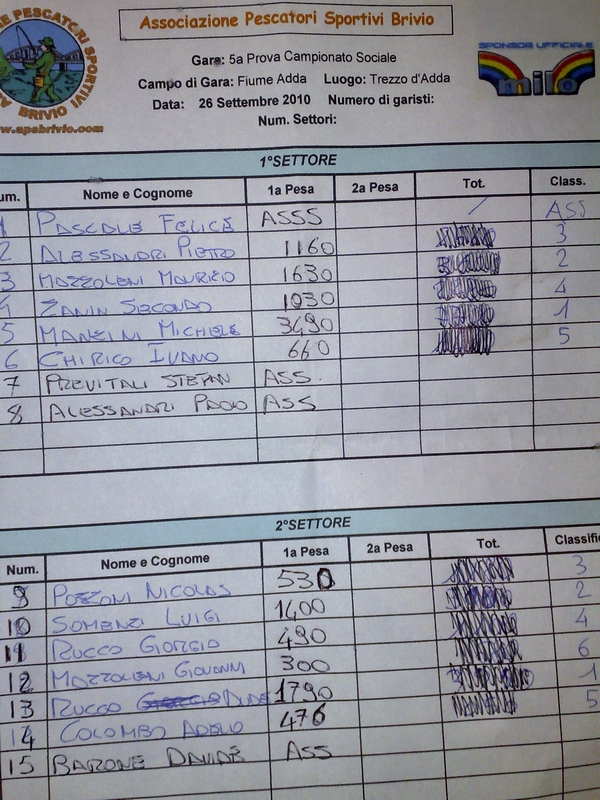 Associazione Pescatori Sportivi Brivio
Gara: 5a Prova Campionato Sociale
SPONSOR UFFICIALE
milo
Campo di Gara: Fiume Adda Luogo: Trezzo d'Adda
Data: 26 Settembre 2010 Numero di garisti:
Num. Settori:
BRIVIO
w.apsbrivio.com
1°SETTORE
um. Nome e Cognome 1a Pesa 2a Pesa Tot. Class.
1 PASCALE FELICE ASSS / ASS
2 ALESSANDRI PIETRO 1160 3
3 MAZZOLENI MAURIZIO 1630 2
4 ZANIN SECONDO 1030 4
5 MANZINI MICHELE 3490 1
6 CHIRICO IVANO 660 5
7 PREVITALI STEFAN ASS.
8 ALESSANDRI PAOLO ASS
2°SETTORE
Num. Nome e Cognome 1a Pesa 2a Pesa Tot. Classific
9 POZZONI NICOLAS 530 3
10 SOMENZI LUIGI 1400 2
11 RUCCO GIORGIO 490 4
12 MAZZOLENI GIOVANNI 300 6
13 RUCCO 1790 1
14 COLOMBO ADELIO 476 5
15 BARONE DAVIDE ASS